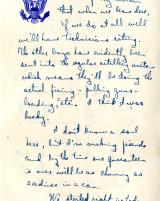 that when we leave here,
If we do at all well
we'll have technicians rating.
The other boys have evidently been
sent into the regular artillery units
which means they'll be doing the
actual firing, pulling guns,
loading, etc. I think I was
lucky.
I don't know a soul
here, but I'm making friends
and by the time our quarantine
is over we'll be as chummy as
sardines in a can.
We started right in today